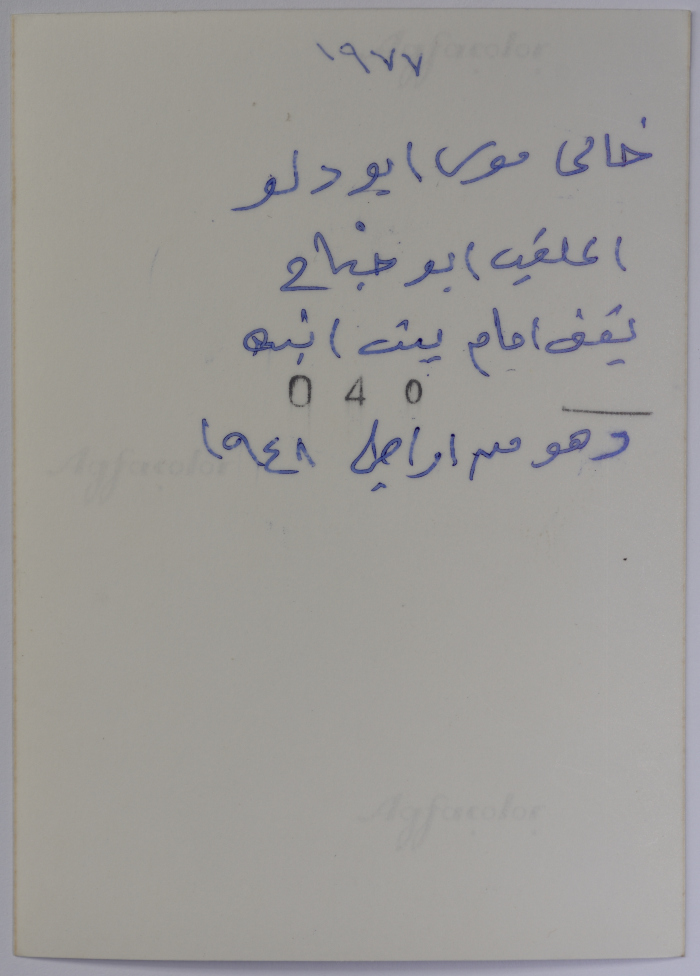 Agfacolor
١٩٧٧
خالي موسى ابو دلو
الملقب ابو جناح
يقف امام بيت ابنه
0 4 0
وهو من اراضي ١٩٤٨
Agfacolor
Agfacolor